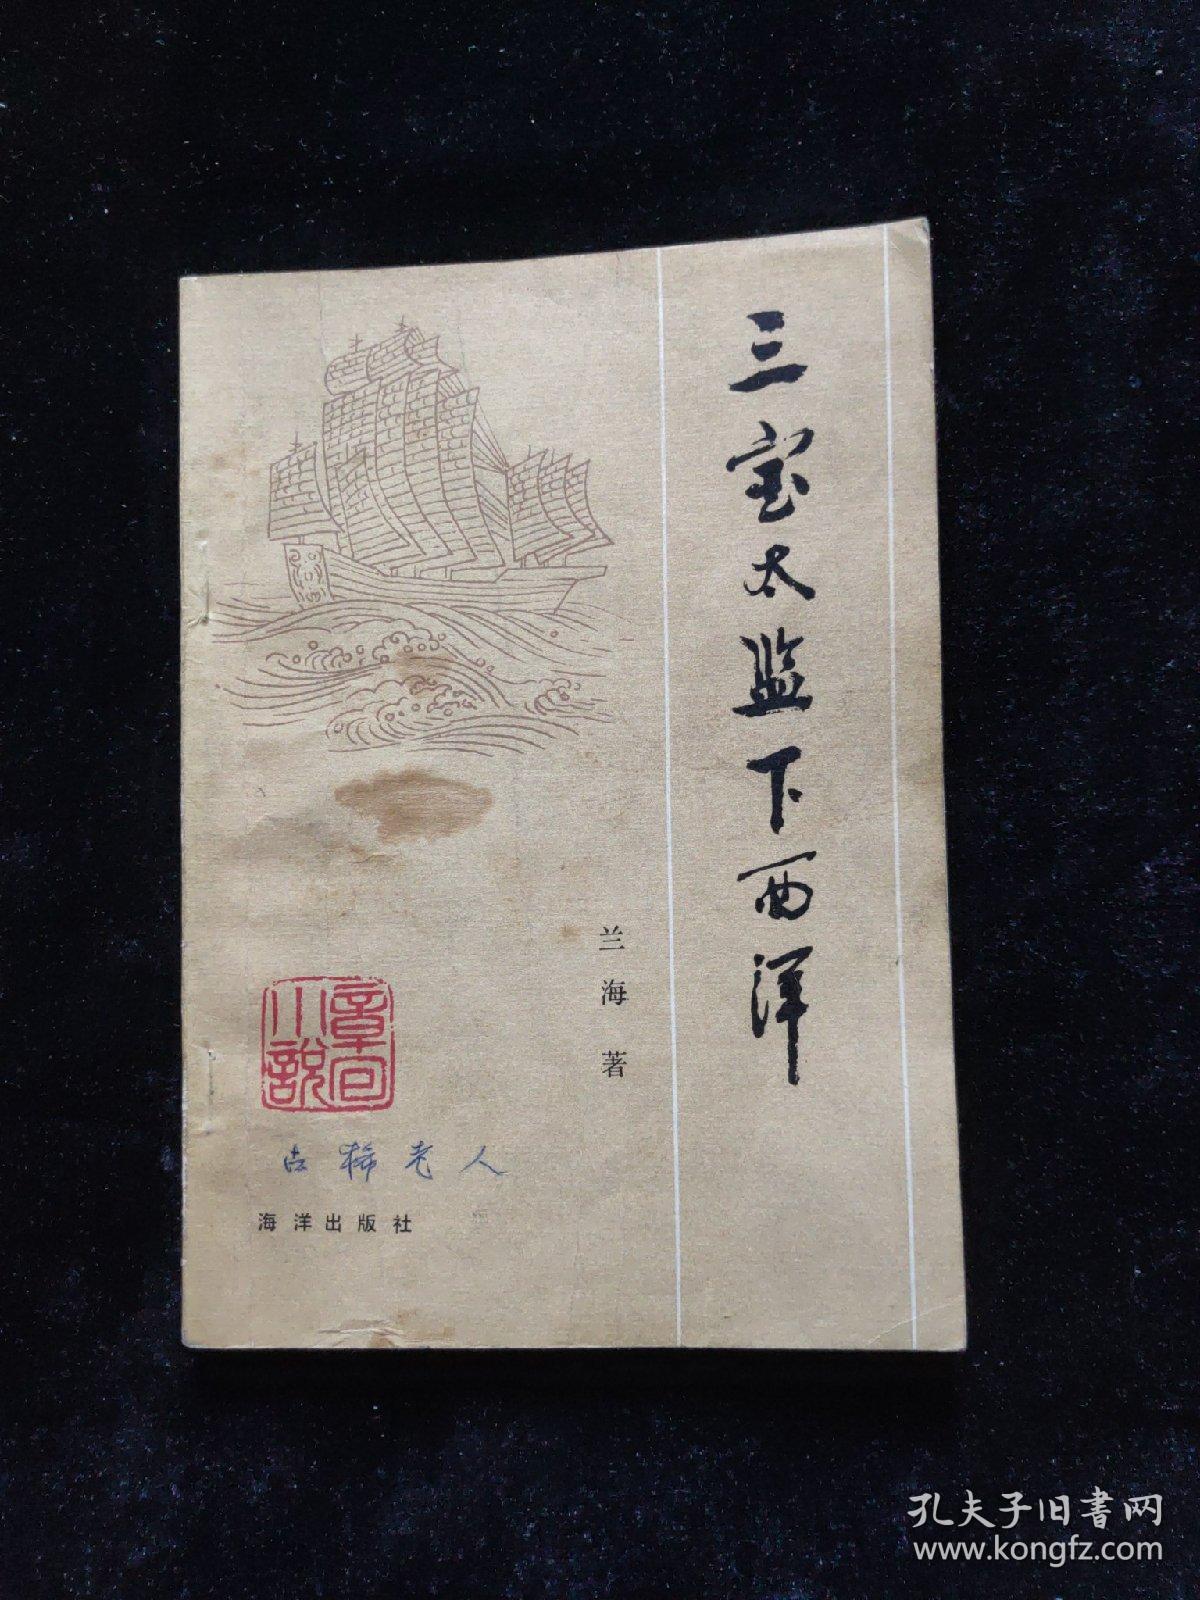 三宝太监下西洋
兰海著
章回
小説
古稀老人
海洋出版社
孔夫子旧書网
www.kongfz.com